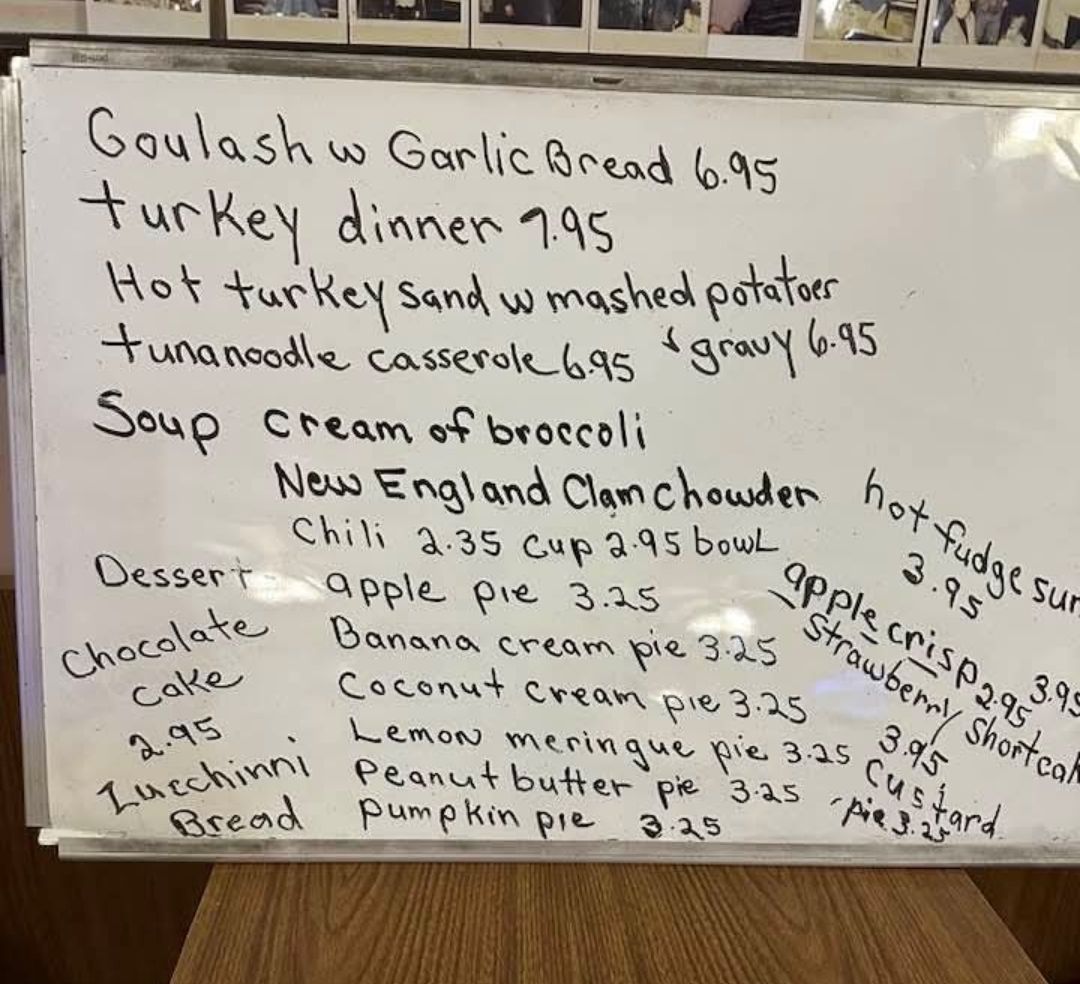 Goulash w Garlic Bread 6.95
turkey dinner 7.95
Hot turkey sand w mashed potatoes
& gravy 6.95
tuna noodle casserole 6.95
Soup cream of broccoli
New England Clam Chowder
Chili 2.35 cup 2.95 bowl
Dessert apple pie 3.25
Banana cream pie 3.25
Coconut cream pie 3.25
Lemon meringue pie 3.25
Peanut butter pie 3.25
Pumpkin pie 3.25
Chocolate
cake
2.95
Zucchinni
Bread
hot fudge sun
3.95
apple crisp 2.95
3.95
Strawberry Shortcak
3.95
Custard
pie 3.25